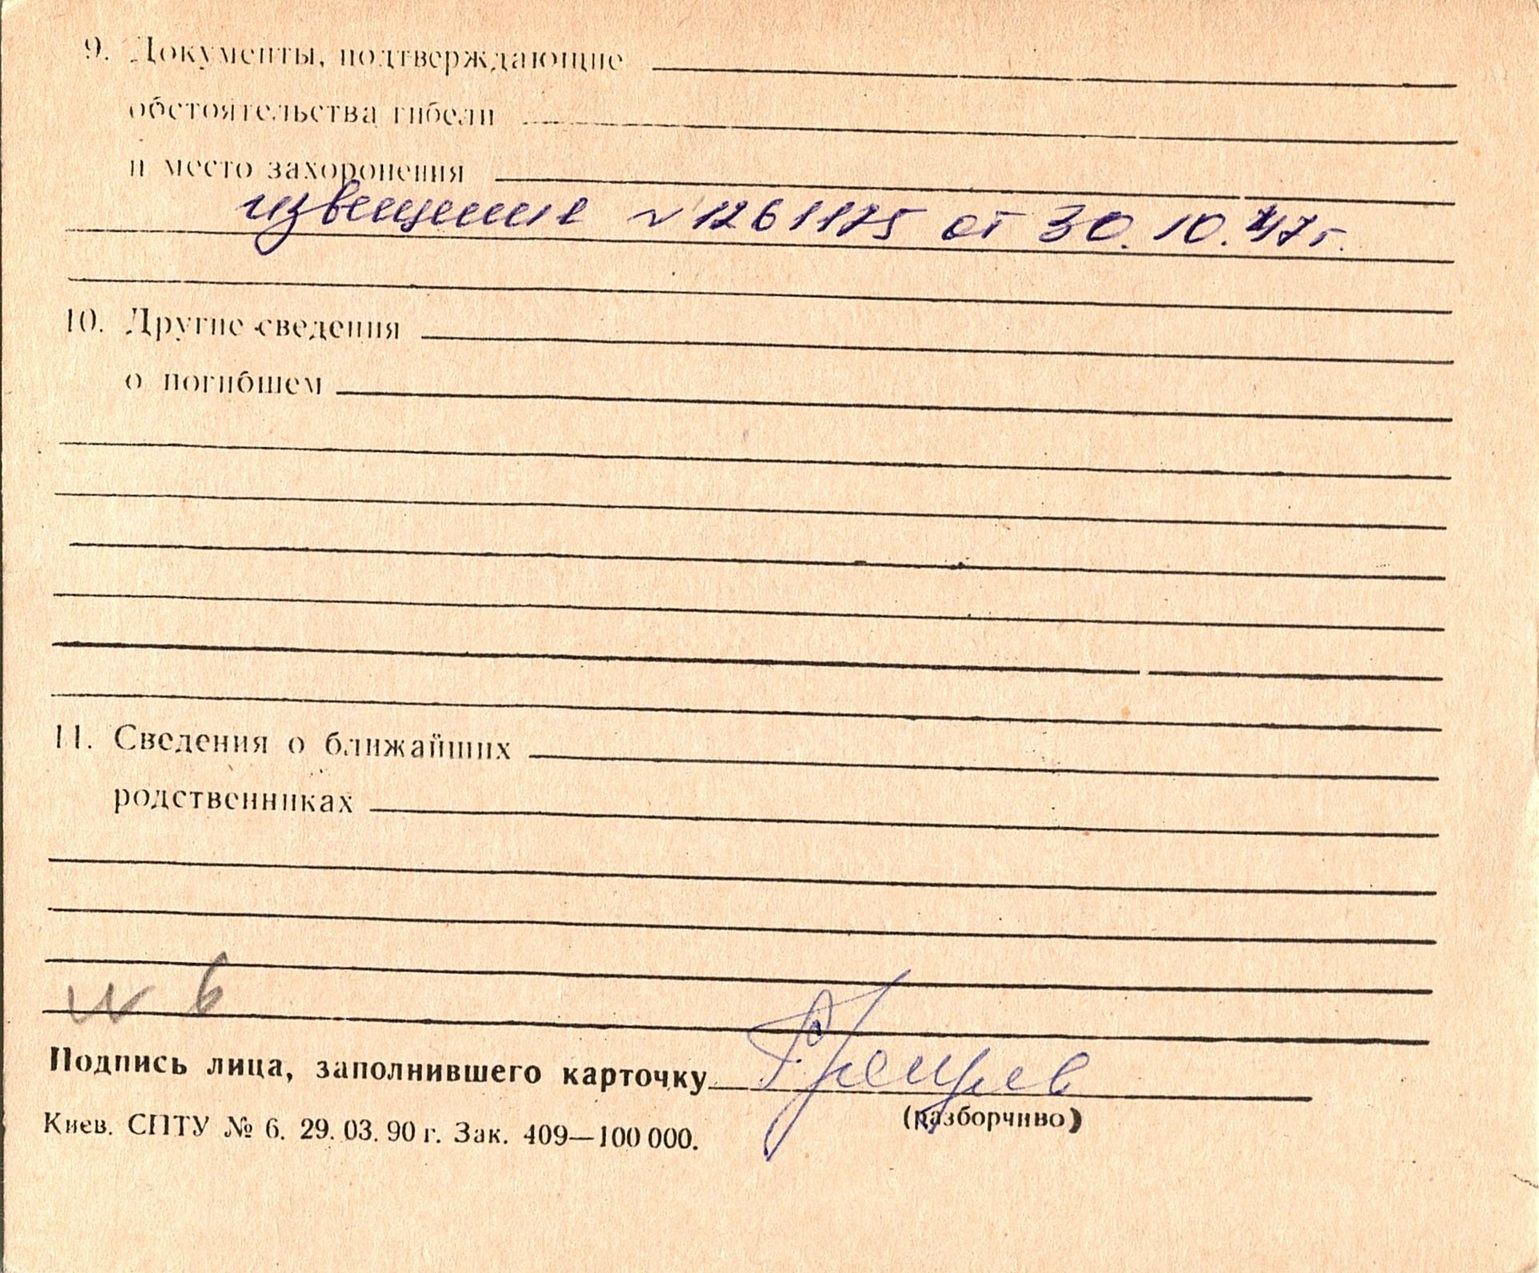 9. Документы, подтверждающие
обстоятельства гибели
и место захоронения
извещение № 1261125 от 30.10.47 г.
10. Другие сведения
о погибшем
11. Сведения о ближайших
родственниках
№ 6
Подпись лица, заполнившего карточку
(разборчиво)
Киев. СПТУ № 6. 29. 03. 90 г. Зак. 409—100 000.